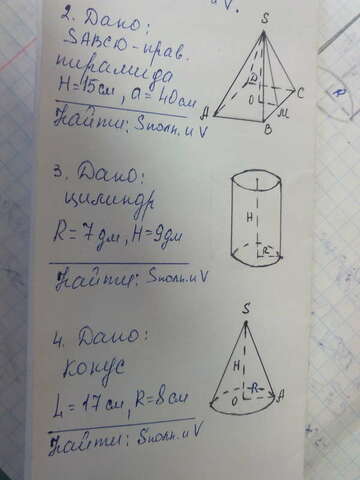 V.
2. Дано:
SABCD-прав.
пирамида
H=15см, a=40см
Найти: Sполн. и V
S
A
B
C
D
O
M
3. Дано:
цилиндр
R=7дм, H=9дм
Найти: Sполн. и V
H
R
4. Дано:
конус
L=17см, R=8см
Найти: Sполн. и V
S
H
R
O
A